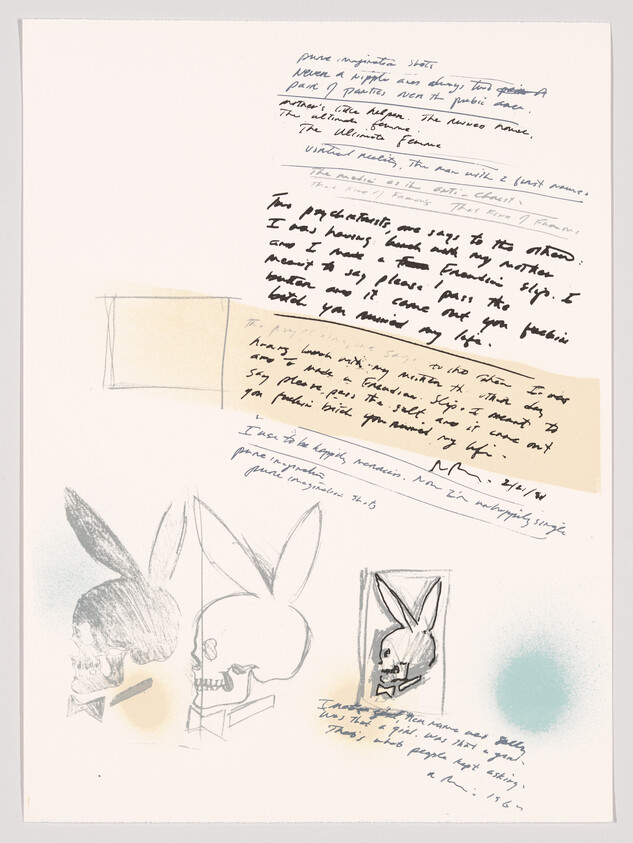 pure imagination shots
Never a nipple and always two A
pair of panties over the pubic area.
mother's little helper. The nurses nurse.
The ultimate femme.
The Ultimate Femme
virtual reality. The man with 2 first names.
The media as the anti-christ.
That Kind of Famous That Kind of Famous
Two psychiatrists, one says to the other:
I was having lunch with my mother
and I made a Freudian slip. I
meant to say please pass the
butter and it came out you fuckin
bitch you ruined my life.
Two psychiatrists, one says to the other I was
having lunch with my mother the other day
and I made a Freudian slip. I meant to
say please pass the salt and it came out
you fuckin bitch you ruined my life.
2/21/91
I use to be happily married. Now I'm unhappily single
pure imagination
pure imagination shots
I a girl, her name was Sally
Was that a girl. Was that a girl.
That's what people kept asking.